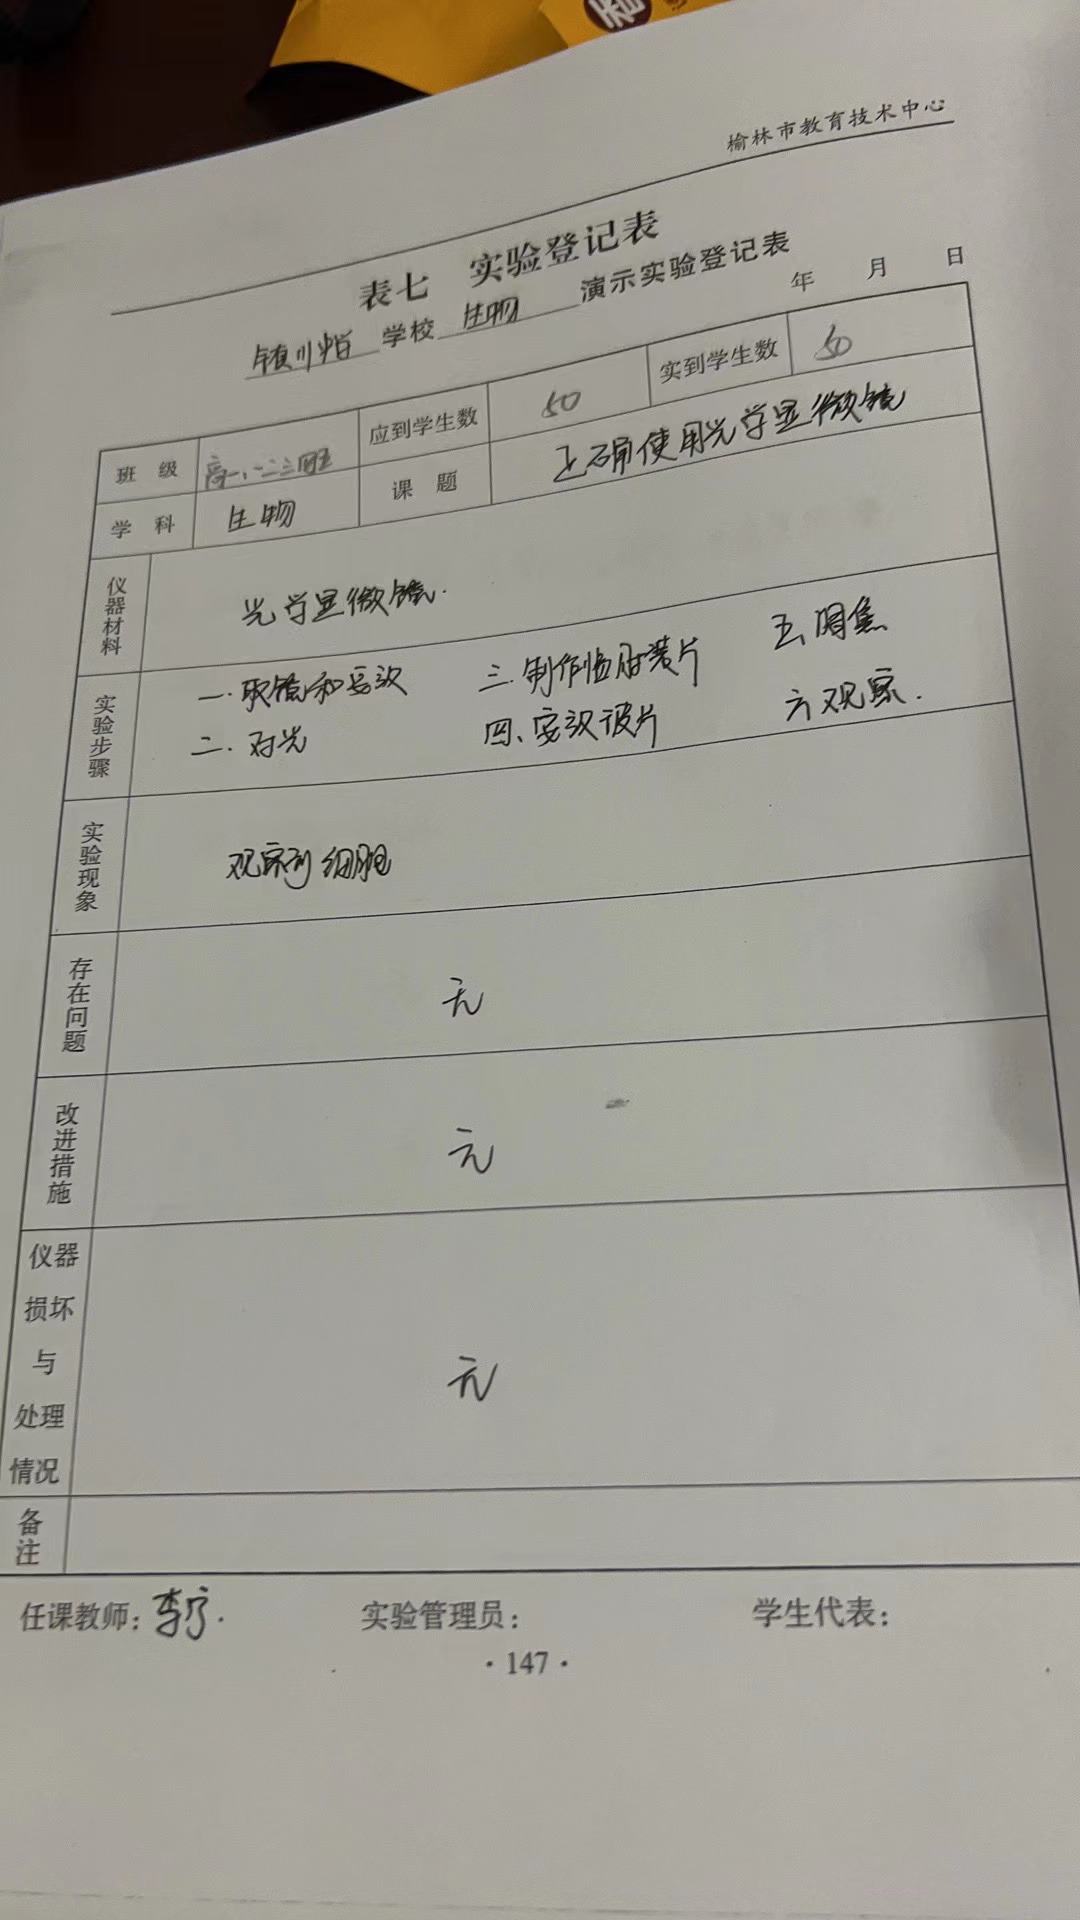 榆林市教育技术中心
表七 实验登记表
镇川中 学校 生物 演示实验登记表
年 月 日
班级 高一、一二三四班 应到学生数 50 实到学生数 50
学科 生物 课题 正确使用光学显微镜
仪器材料 光学显微镜.
实验步骤 一.取镜和安放 三.制作临时装片 五.调焦
二.对光 四、安放玻片 六观察.
实验现象 观察到细胞
存在问题 无
改进措施 无
仪器损坏与处理情况 无
备注
任课教师: 李宁. 实验管理员: 学生代表:
·147·